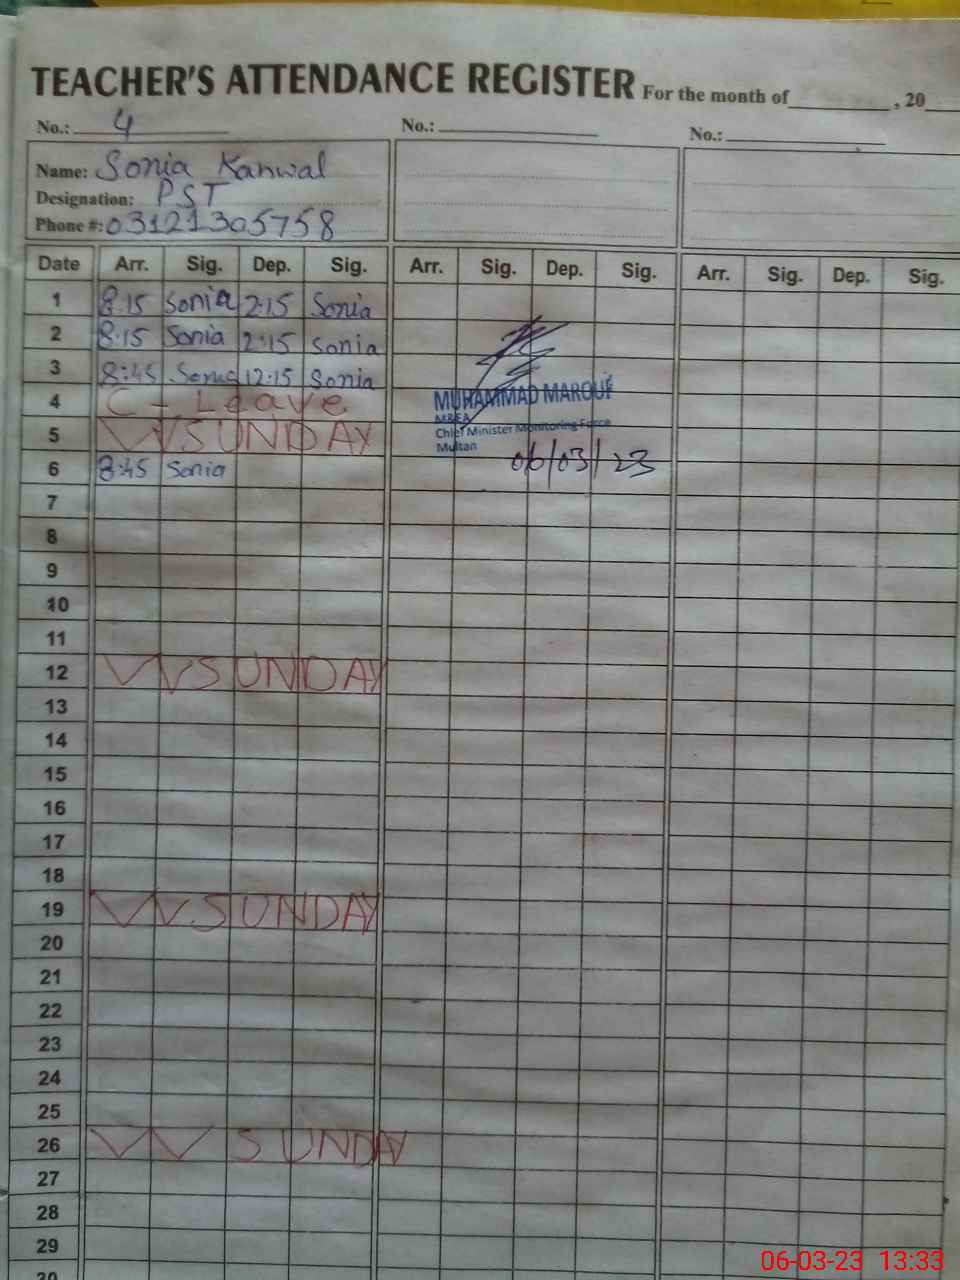 TEACHER'S ATTENDANCE REGISTER For the month of , 20
No.: 4 No.: No.:
Name: Sonia Kanwal
Designation: PST
Phone #: 03121305758
Date Arr. Sig. Dep. Sig. Arr. Sig. Dep. Sig. Arr. Sig. Dep. Sig.
1 8:15 Sonia 2:15 Sonia
2 8:15 Sonia 2:15 Sonia
3 8:45 Sonia 12:15 Sonia
4 C - Leave
MUHAMMAD MAROUF
M&EA
5 SUNDAY
Chief Minister Monitoring Force
Multan
6 8:45 Sonia
06/03/23
7
8
9
10
11
12 SUNDAY
13
14
15
16
17
18
19 SUNDAY
20
21
22
23
24
25
26 SUNDAY
27
28
29
30
06-03-23 13:33